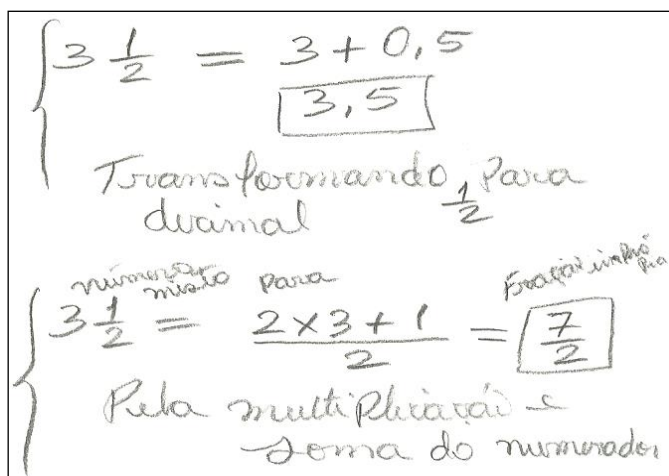 3 1/2 = 3 + 0,5
3,5
Transformando 1/2 para
decimal
número misto para Fração imprópria
3 1/2 = (2 x 3 + 1)/2 = 7/2
Pela multiplicação e
soma do numerador